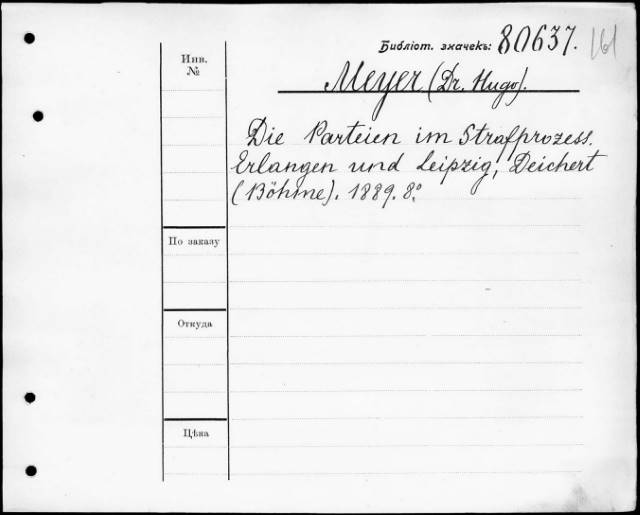 Библіот. значекъ: 80637. 161
Инв. №
Meyer (Dr. Hugo).
Die Parteien im Strafprozess.
Erlangen und Leipzig, Deichert
(Böhme). 1889. 8°.
По заказу
Откуда
Цѣна